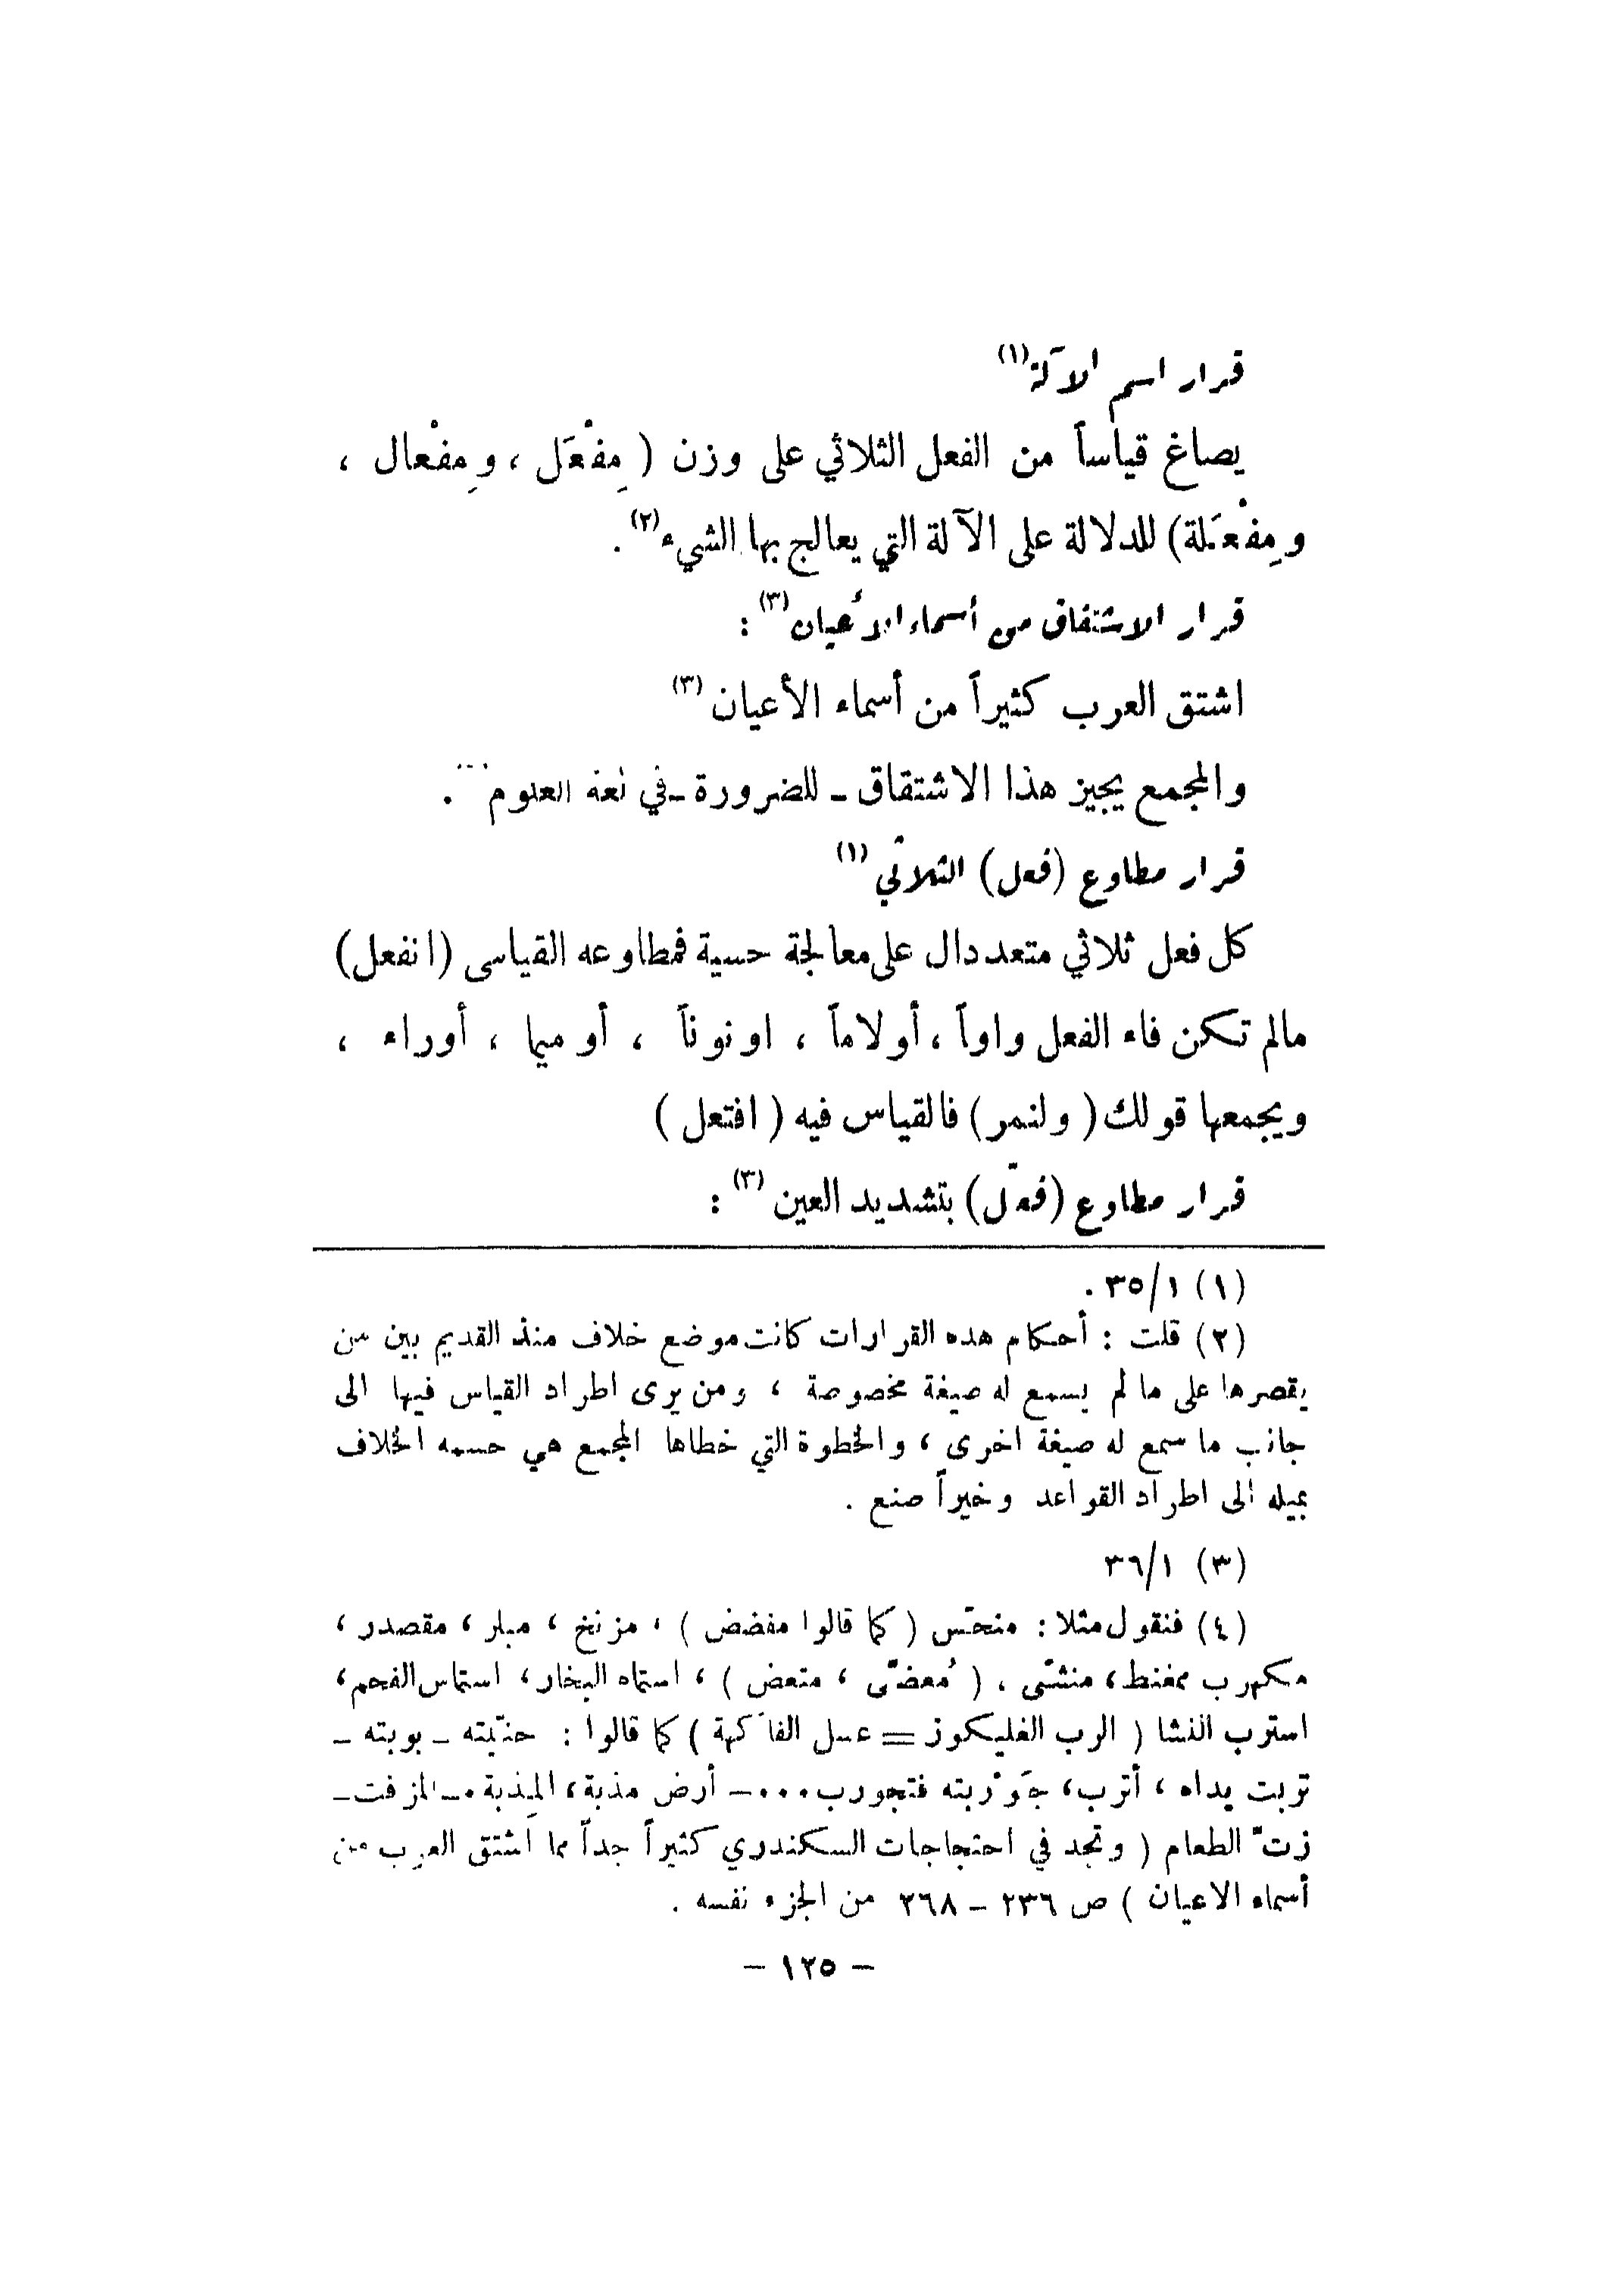 قرار اسم الآلة(١)
يصاغ قياساً من الفعل الثلاثي على وزن ( مِفْعَل ، ومِفْعال ،
ومِفْعَلة) للدلالة على الآلة التي يعالج بها الشيء(٢) .
قرار الاشتقاق من أسماء الأعيان(٣) :
اشتق العرب كثيراً من أسماء الأعيان(٣)
والمجمع يجيز هذا الاشتقاق ـ للضرورة ـ في لغة العلوم .
قرار مطاوع (فعل) الثلاثي(١)
كل فعل ثلاثي متعد دال على معالجة حسية فمطاوعه القياسي (انفعل)
مالم تكن فاء الفعل واواً ، أو لاماً ، او نوناً ، أو ميما ، أو راء ،
ويجمعها قولك ( ولنمر ) فالقياس فيه ( افتعل )
قرار مطاوع (فعّل) بتشديد العين(٣) :
(١) ٣٥/١ .
(٢) قلت : أحكام هده القرارات كانت موضع خلاف منذ القديم بين من
يقصرها على ما لم يسمع له صيغة مخصوصة ، ومن يرى اطراد القياس فيها الى
جانب ما سمع له صيغة اخرى ، والخطوة التي خطاها المجمع هي حسمه الخلاف
بميله الى اطراد القواعد وخيراً صنع .
(٣) ٣٦/١
(٤) فنقول مثلا : منحّس ( كما قالوا مفضض ) ، مزنخ ، مبلر ، مقصدر ،
مكهرب ممغنط ، منشّى ، ( مُعضّى ، متعض ) ، استماه البخار ، استماس الفحم ،
استرب النشا ( الرب الغليكوز = عسل الفاكهة ) كما قالوا : حنّيته ـ بوبته ـ
تربت يداه ، أترب ، جَوْربته فتجورب ... ـ أرض مذبة ، المِذبة . ـ المزفت ـ
زتّ الطعام ( وتجد في احتجاجات السكندري كثيراً جداً مما اشتق العرب من
أسماء الاعيان ) ص ٢٣٦ ـ ٢٦٨ من الجزء نفسه .
— ١٢٥ —